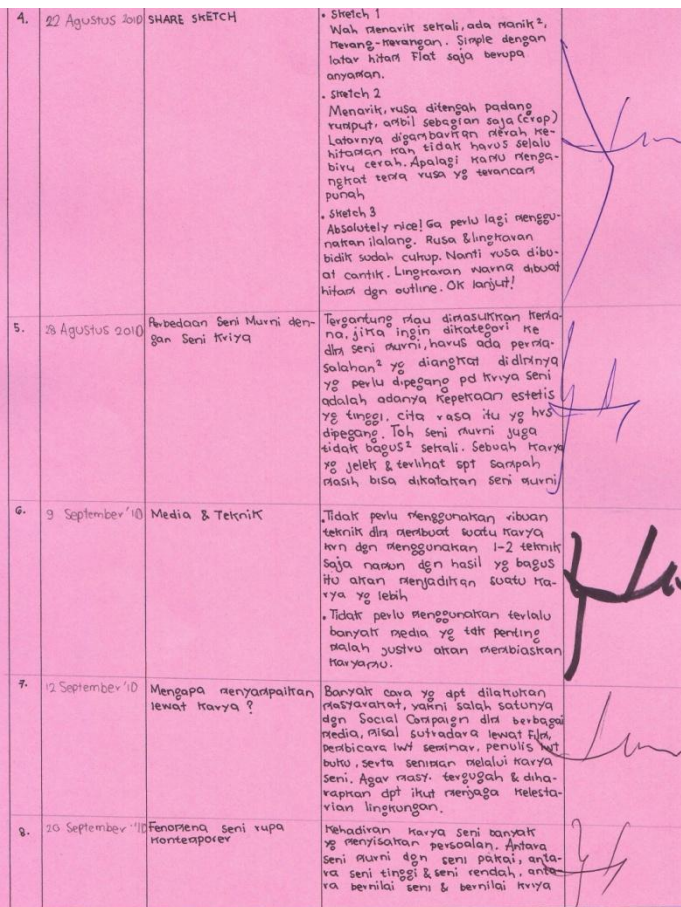 4. 22 Agustus 2010 SHARE SKETCH
• Sketch 1
Wah menarik sekali, ada manik²,
kerang-kerangan. Simple dengan
latar hitam Flat saja berupa
anyaman.
• Sketch 2
Menarik, rusa ditengah padang
rumput, ambil sebagian saja (crop)
Latarnya digambarkan merah ke-
hitaman kan tidak harus selalu
biru cerah. Apalagi kamu menga-
ngkat tema rusa yg terancam
punah
• Sketch 3
Absolutely nice! Ga perlu lagi menggu-
nakan ilalang. Rusa & lingkaran
bidik sudah cukup. Nanti rusa dibu-
at cantik. Lingkaran warna dibuat
hitam dgn outline. Ok lanjut!
5. 28 Agustus 2010 Perbedaan Seni Murni den-
gan Seni Kriya
Tergantung mau dimasukkan kema-
na, jika ingin dikategori ke
dlm seni murni, harus ada perma-
salahan² yg diangkat didlmnya
yg perlu dipegang pd kriya seni
adalah adanya kepekaan estetis
yg tinggi, cita rasa itu yg hrs
dipegang. Toh seni murni juga
tidak bagus² sekali. Sebuah karya
yg jelek & terlihat spt sampah
masih bisa dikatakan seni murni
6. 9 September '10 Media & Teknik
• Tidak perlu menggunakan ribuan
teknik dlm membuat suatu karya
krn dgn menggunakan 1-2 teknik
saja namun dgn hasil yg bagus
itu akan menjadikan suatu ka-
rya yg lebih
• Tidak perlu menggunakan terlalu
banyak media yg tdk penting
malah justru akan membiaskan
karyamu.
7. 12 September '10 Mengapa menyampaikan
lewat karya ?
Banyak cara yg dpt dilakukan
masyarakat, yakni salah satunya
dgn Social Campaign dlm berbagai
media, misal sutradara lewat Film,
pembicara lwt seminar, penulis lwt
buku, serta seniman melalui karya
seni. Agar masy. tergugah & diha-
rapkan dpt ikut menjaga kelesta-
rian lingkungan.
8. 20 September '10 Fenomena seni rupa
kontemporer
Kehadiran karya seni banyak
yg menyisakan persoalan. Antara
seni murni dgn seni pakai, anta-
ra seni tinggi & seni rendah, anta-
ra bernilai seni & bernilai kriya